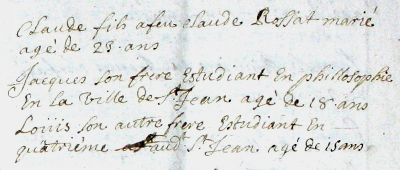 Claude fils a feu Claude Rossat marié
agé de 23 ans
Jacques son frere Estudiant En phillosophie
En la Ville de St Jean agé de 18 ans
Loüiis son autre frere Estudiant En
quatrième audt St Jean agé de 15 ans